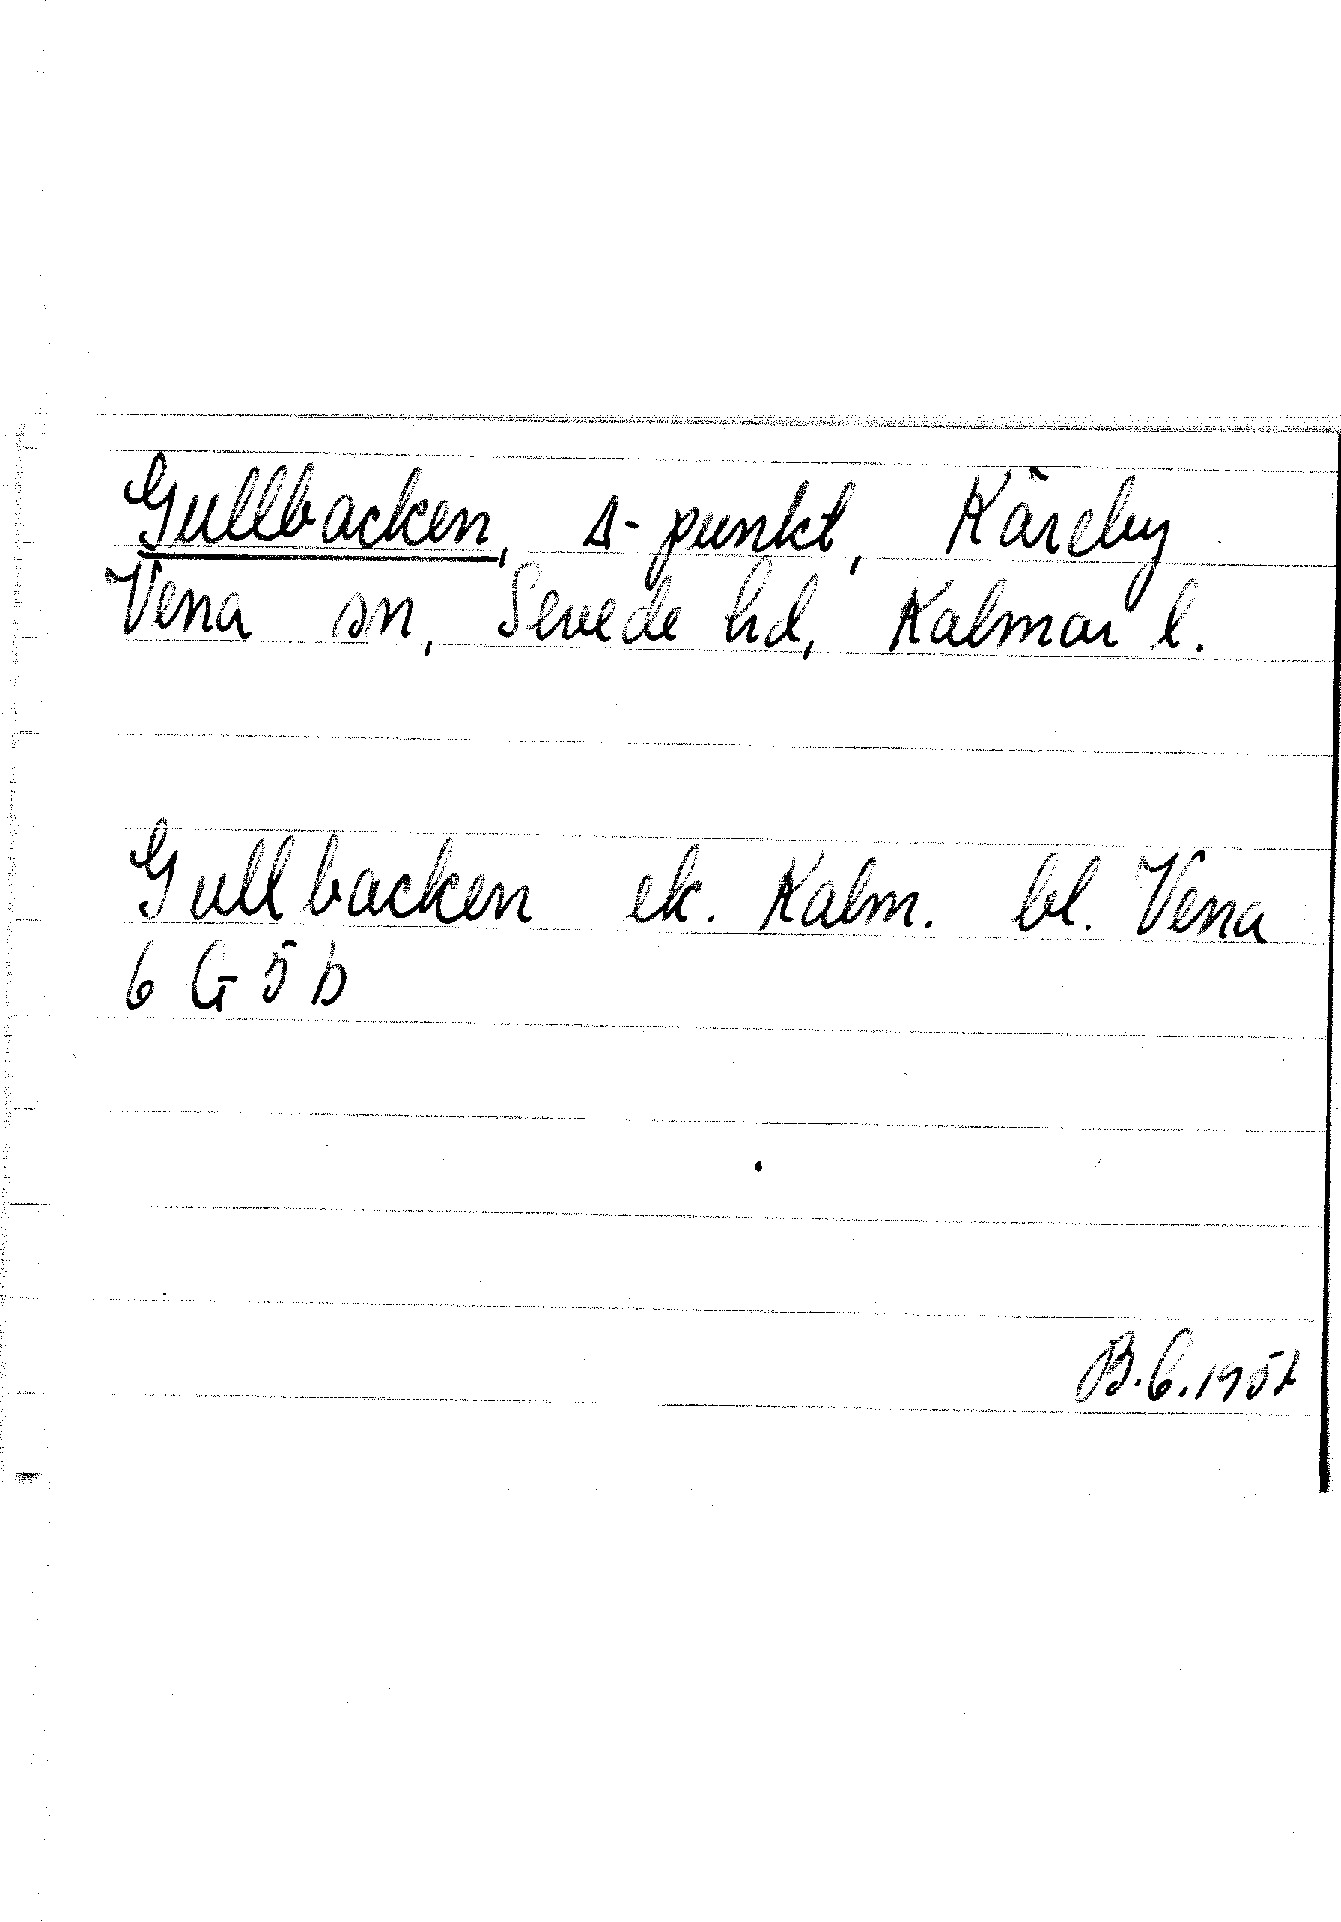 Gullbacken, Δ-punkt, Käreby
Vena sn, Sevede hd, Kalmar l.
Gullbacken ek. Kalm. bl. Vena
6 G 5 b
B.G.1952